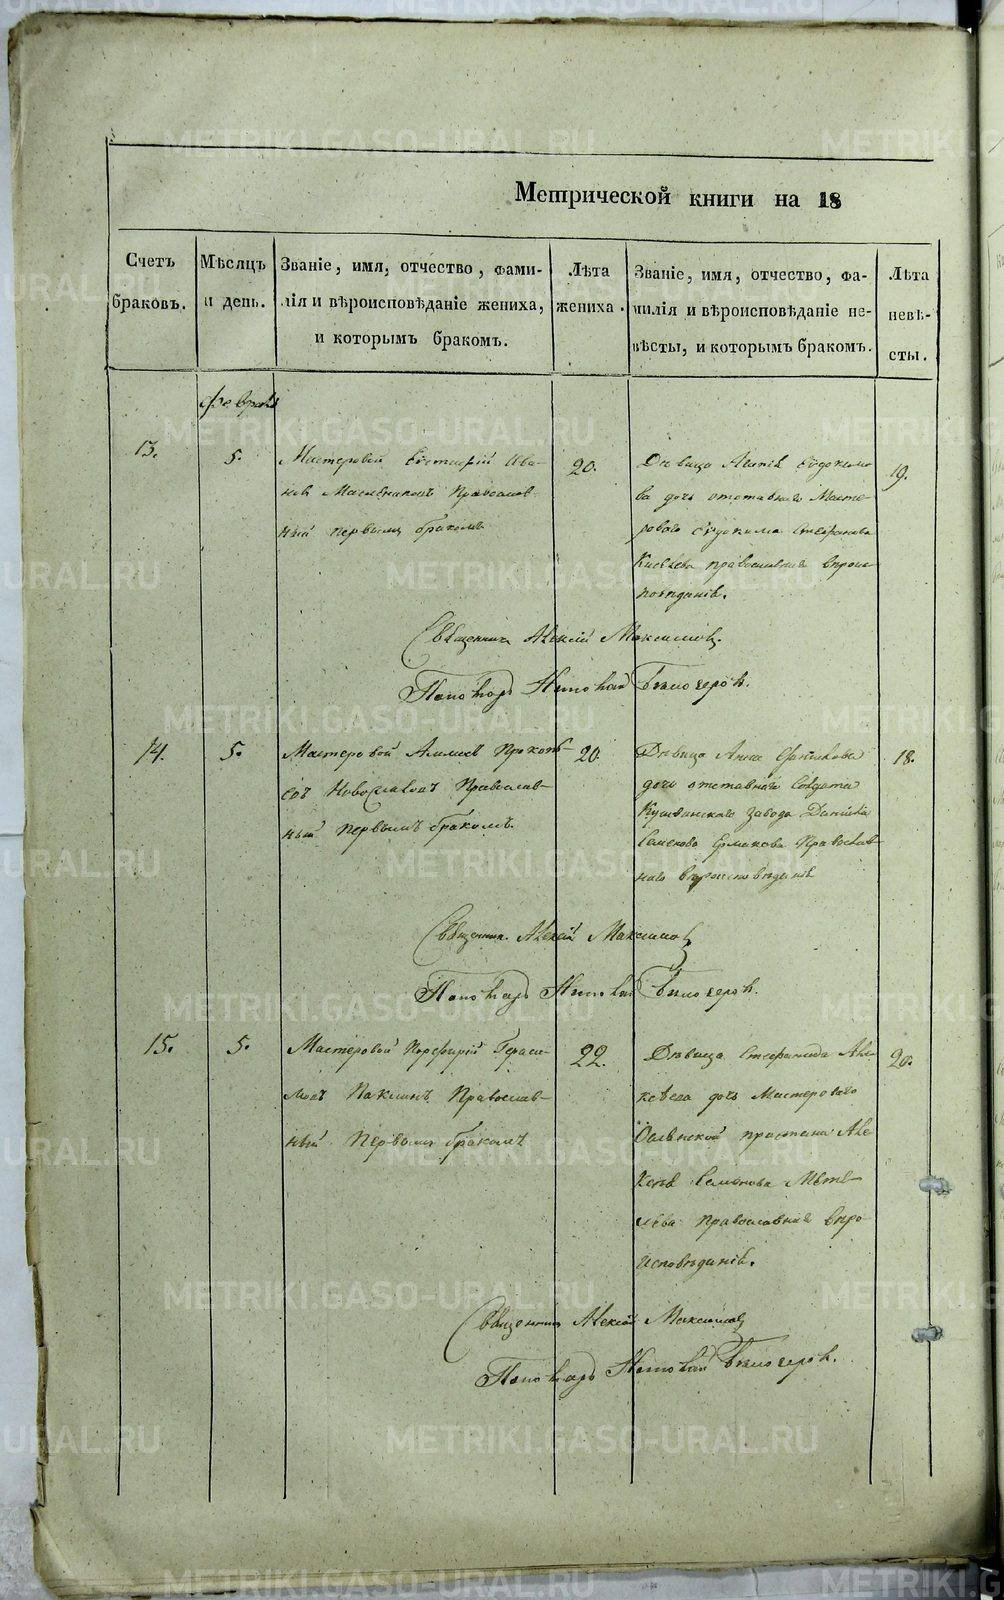 Метрической книги на 18
Счетъ браковъ.
Мѣсяцъ и день.
Званіе, имя, отчество, фами-
лія и вѣроисповѣданіе жениха,
и которымъ бракомъ.
Лѣта жениха.
Званіе, имя, отчество, фа-
милія и вѣроисповѣданіе не-
вѣсты, и которымъ бракомъ.
Лѣта невѣ-
сты.
Февраля
13.
5.
Мастеровой Евстафій Ива-
новъ Православ-
ный первымъ бракомъ
20.
Дѣвица Евдокимо
ва дочь отставнаго Масте-
роваго Евдокима Стефанова
Киселева православнаго вѣрои-
повѣданія.
19.
Священникъ Алексій Максимовъ.
Пономарь Бѣлозеровъ.
14.
5.
Мастеровой Прокопь-
евъ Новоселовъ Православ-
ный первымъ бракомъ.
20.
Дѣвица Анна Данилова
дочь отставнаго Солдата
Кушвинскаго завода Даніила
Семенова Ермакова Православ
наго вѣроисповѣданія
18.
Священник. Алексій Максимовъ
Пономарь Бѣлозеровъ.
15.
5.
Мастеровой Порфирій Гераси-
мовъ Паклинъ Православ-
ный Первымъ бракомъ
22.
Дѣвица Стефанида Але-
ксѣева дочь Мастероваго
пристани Але-
ксѣя Семенова Мѣте-
лева православнаго вѣро
исповѣданія.
20.
Священникъ Алексій Максимовъ
Пономарь Бѣлозеровъ.
METRIKI.GASO-URAL.RU